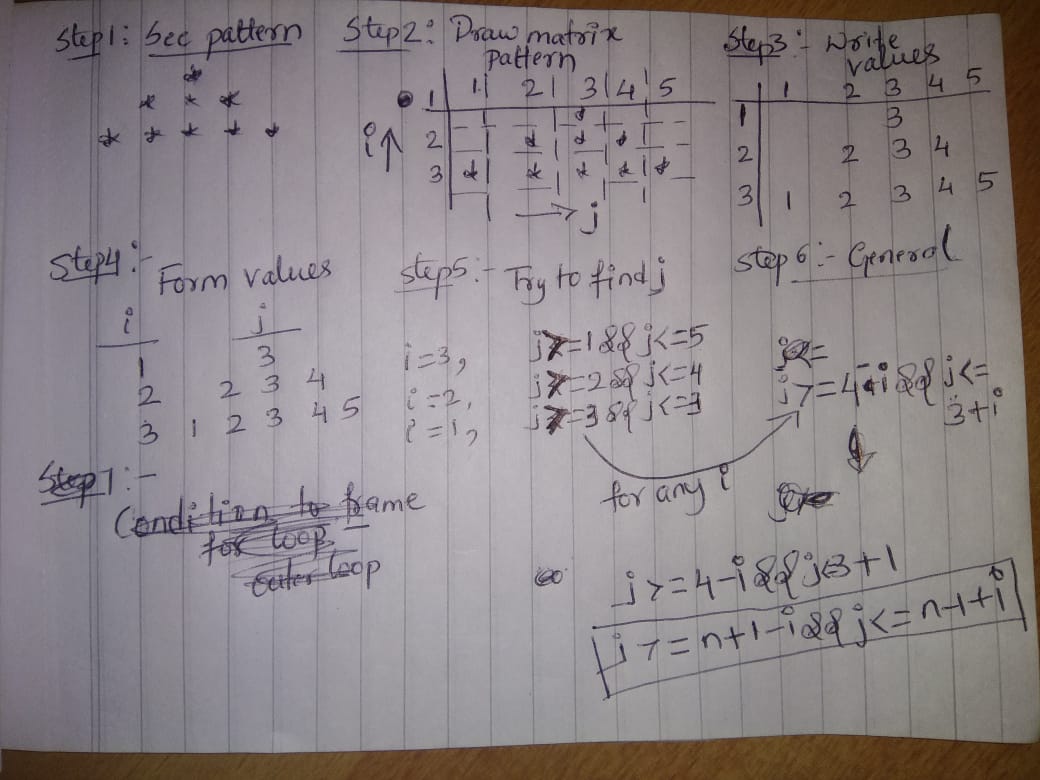 Step1: See pattern
*
* * *
* * * * *
Step2: Draw matrix
Pattern
1 2 3 4 5
1 *
i↑ 2 * * *
3 * * * * *
→ j
Step3:- Write
values
1 2 3 4 5
1 3
2 2 3 4
3 1 2 3 4 5
Step4:-
Form values
i j
1 3
2 2 3 4
3 1 2 3 4 5
step5:- Try to find j
i=3, j>=1 && j<=5
i=2, j>=2 && j<=4
i=1, j>=3 && j<=3
for any i
step 6:- General
j>=4-i && j<=
3+i
Step7:-
Condition to frame
for loop
outer loop
j>=4-i && j<3+1
j>=n+1-i && j<=n-1+i